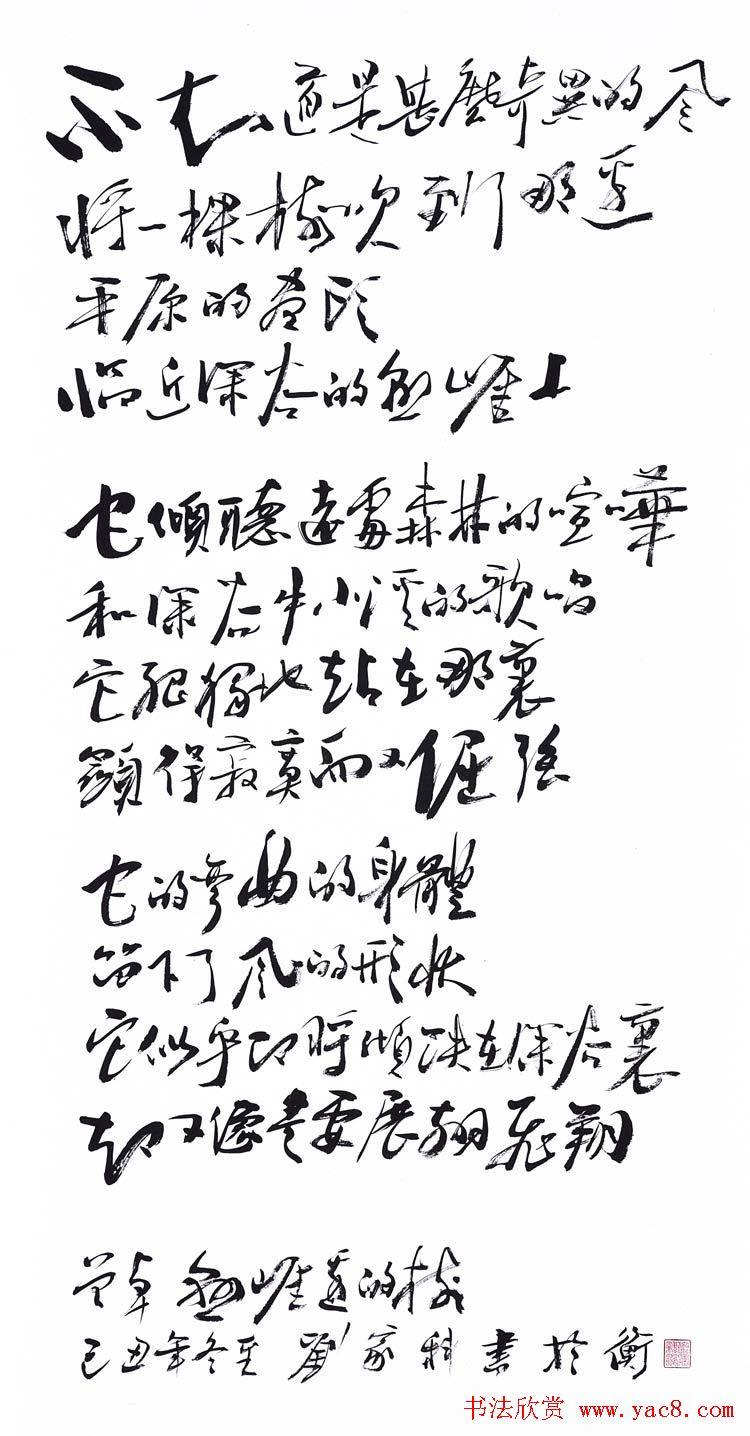 不知道是甚麽奇異的风
将一棵树吹到了那邊
平原的盡頭
临近深谷的懸崖上
它傾聽遠處森林的喧嘩
和深谷中小溪的歌唱
它孤獨地站在那裏
顯得寂寞而又倔强
它的彎曲的身體
留下了风的形状
它似乎即将傾跌在深谷裏
却又像是要展翅飛翔
曾卓 懸崖邊的树
己丑年冬至 劉家科書於衡
书法欣赏 www.yac8.com